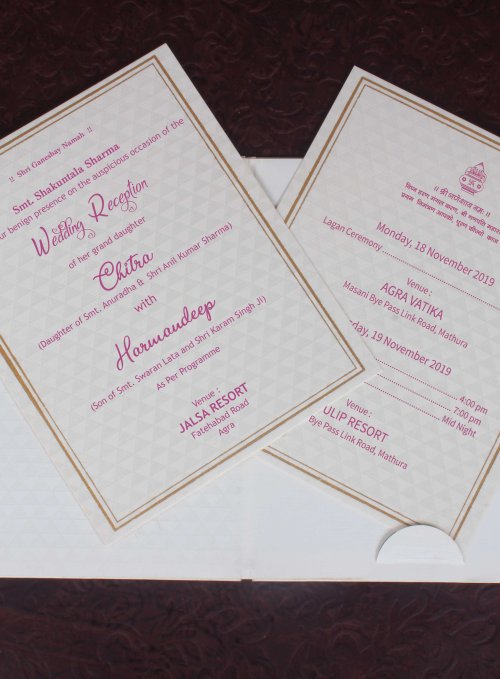 !! Shri Ganeshay Namah !!
Smt. Shakuntala Sharma
ur benign presence on the auspicious occasion of the
Wedding Reception
of her grand daughter
Chitra
(Daughter of Smt. Anuradha & Shri Anil Kumar Sharma)
with
Harmandeep
(Son of Smt. Swaran Lata and Shri Karam Singh Ji)
As Per Programme
Venue :
JALSA RESORT
Fatehabad Road
Agra
!! श्री गणेशाय नमः !!
विघ्न हरण मंगल करण, श्री गणपति
प्रथम निमंत्रण आपको, पूरण कीजो
Monday, 18 November 2019
Lagan Ceremony
Venue :
AGRA VATIKA
Masani Bye Pass Link Road, Mathura
day, 19 November 2019
4:00 pm
7:00 pm
Mid Night
Venue :
ULIP RESORT
Bye Pass Link Road, Mathura